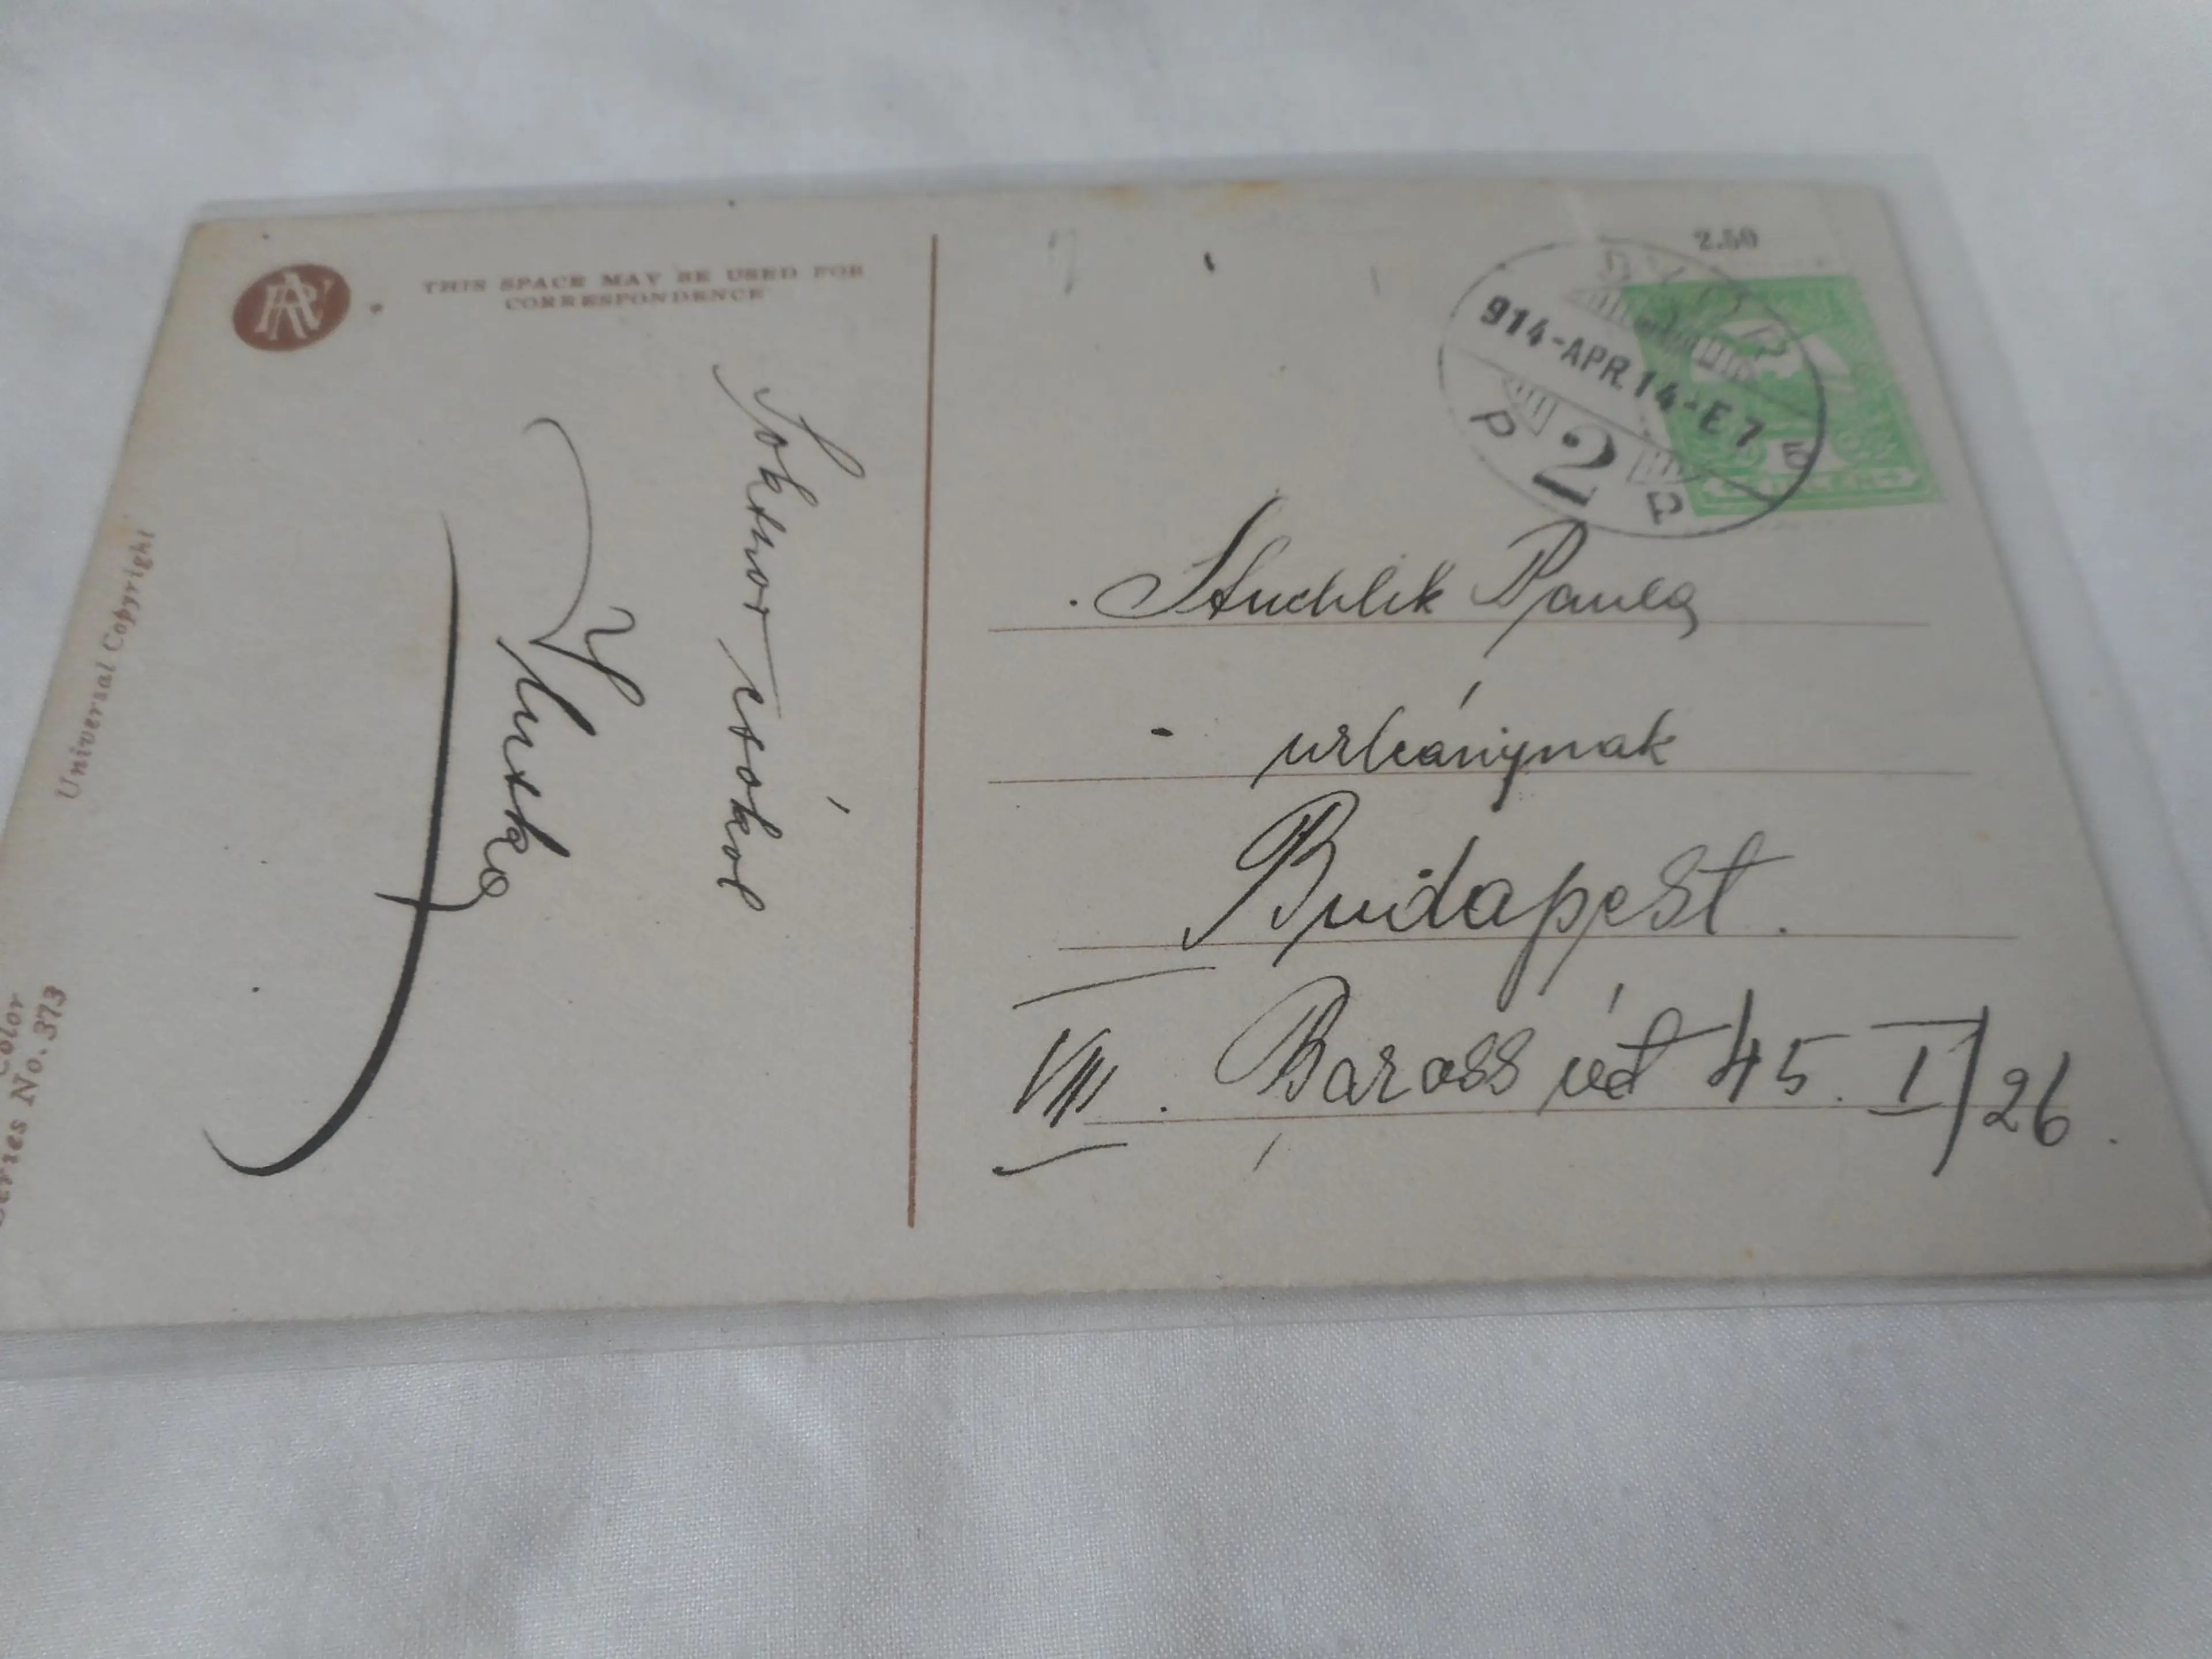 THIS SPACE MAY BE USED FOR
CORRESPONDENCE
Sokszor csókol
Iluska
Universal Copyright
Color
Series No. 373
2.50
914-APR.14-E7
P 2 P
5
Stuchlik Paula
urleánynak
Budapest.
VIII. Baross út 45. I/26.